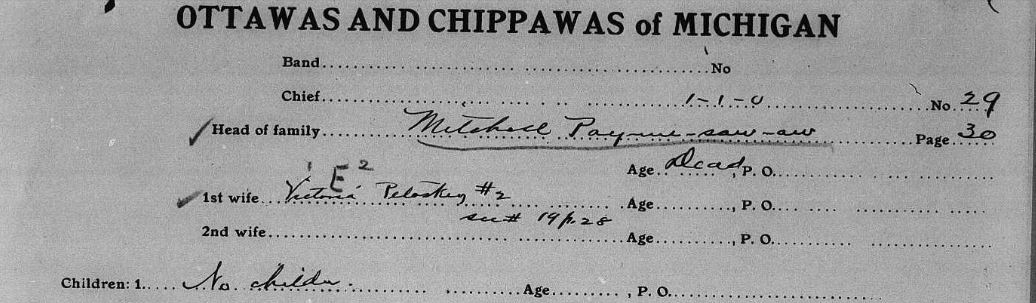 OTTAWAS AND CHIPPAWAS of MICHIGAN
Band No
Chief 1-1-0 No. 29
Head of family Mitchell Pay-me-saw-aw Page 30
Age Dead, P. O.
E 2
1st wife Victoria Petoskey #2 Age , P. O.
see # 19 p. 28
2nd wife Age , P. O.
Children: 1. No childn. Age , P. O.